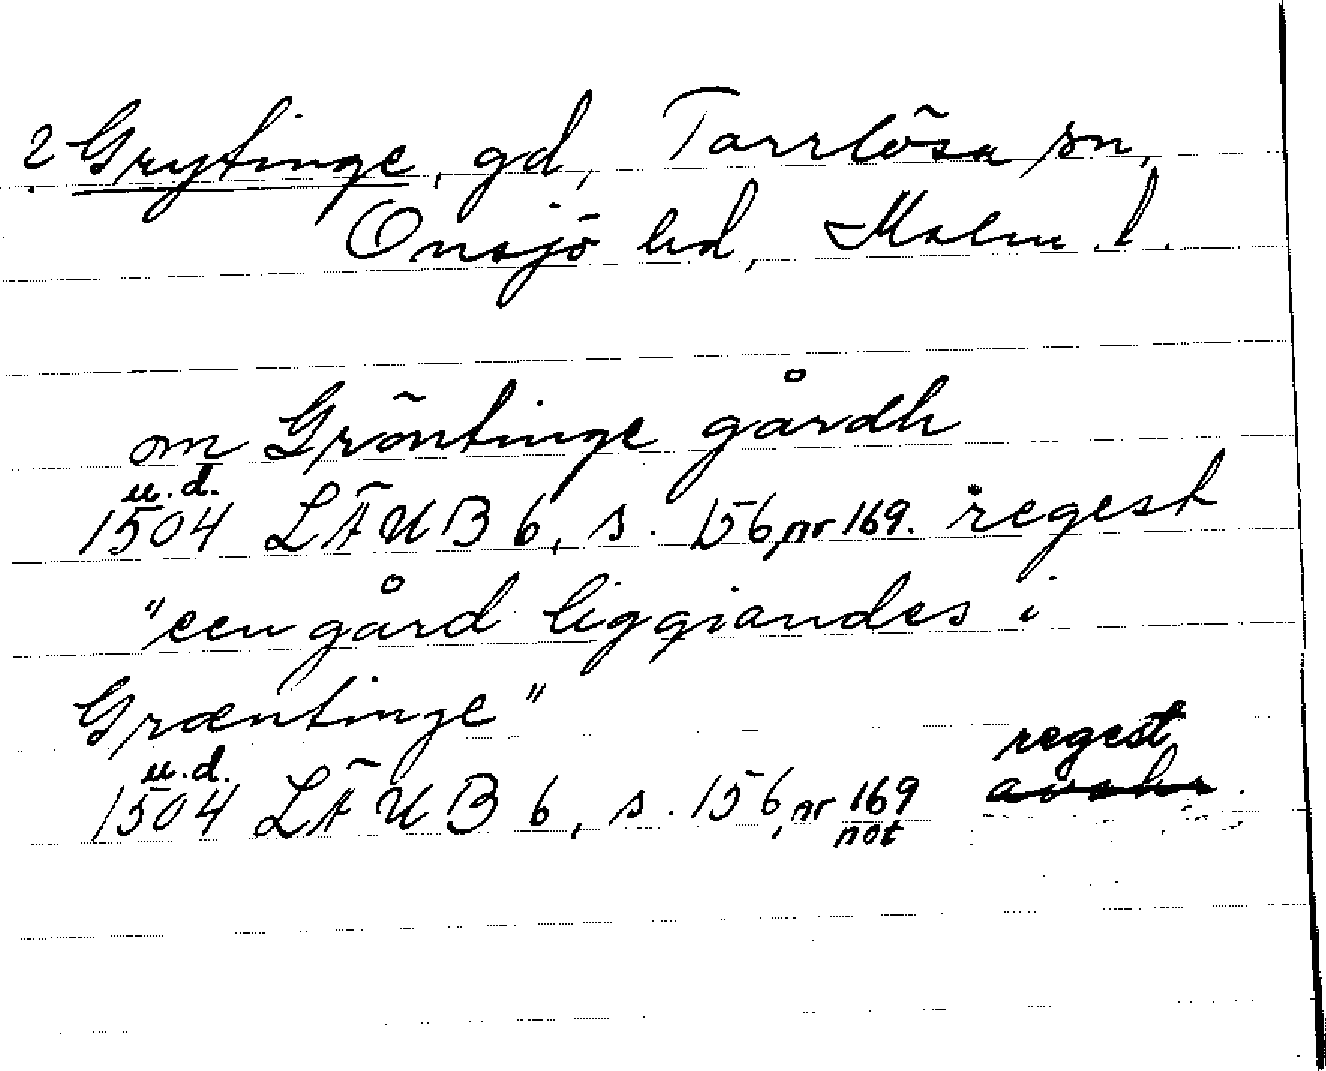 ? Grytinge, gd, Torrlösa sn,
Onsjö hd, Malm. l.
om Gröntinge gårdh
u.d.
1504 LÄUB 6, s. 156, nr 169. regest
"een gård liggiandes i
Græntinge"
u.d.
1504 LÄUB 6, s. 156, nr 169 not regest